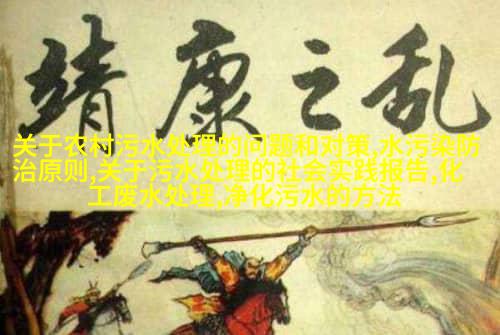 靖康之乱
关于农村污水处理的问题和对策,水污染防
治原则,关于污水处理的社会实践报告,化
工废水处理,净化污水的方法